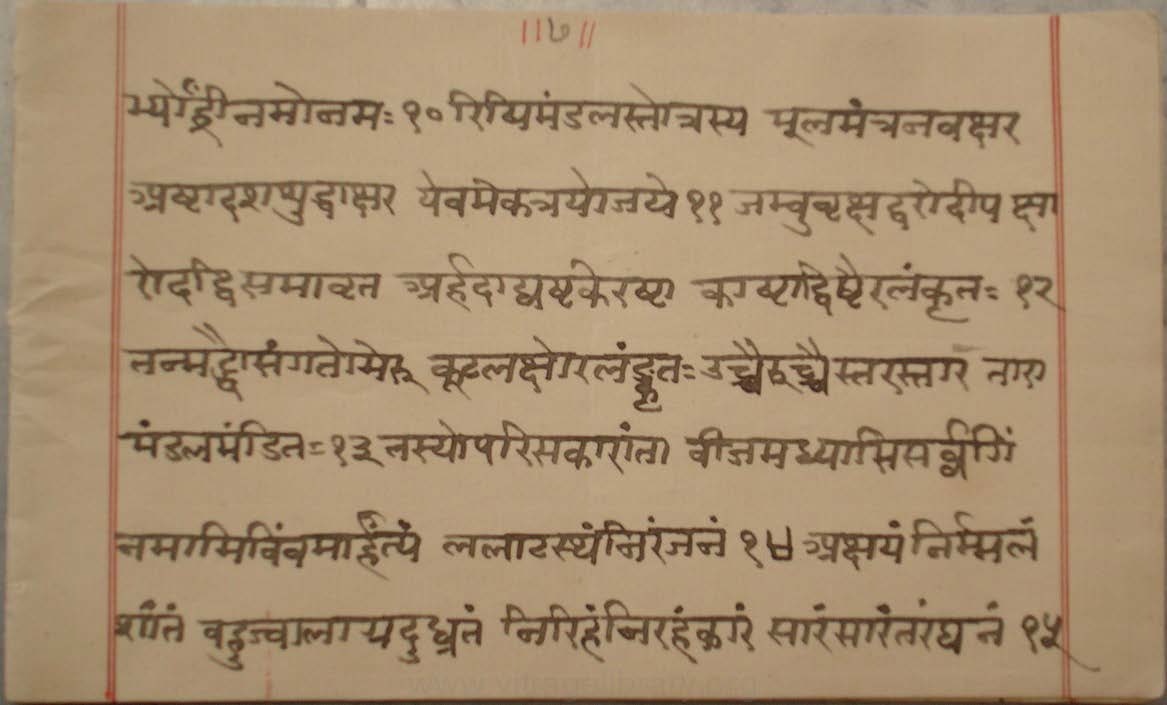 ॥७॥
र्भ्योह्रींनमोनमः १० रिषिमंडलस्तोत्रस्य मूलमंत्रनवक्षर
अष्टादशशुद्धाक्षर येवमेकत्रयोजये ११ जम्बुवृक्षद्धरोदीप क्षा
रोदद्धिसमावृत अर्हदाद्यष्टकेरष्टा काष्टाद्धिष्टैरलंकृतः १२
तन्मद्धैसंगतोमेरू कूटलक्षेरलंङ्कृतः उच्चैरुच्चैस्तरस्तार तारा
मंडलमंडितः १३ तस्योपरिसकारांता वीजमध्यासिसर्व्वगिं
नमामिविंवमार्हंत्यं ललाटस्थंनिरंजनं १४ अक्षयंनिर्म्मलं
शांतं वहुज्वाला निरिहंनिरहंकारं सारंसारंतरंघनं १५